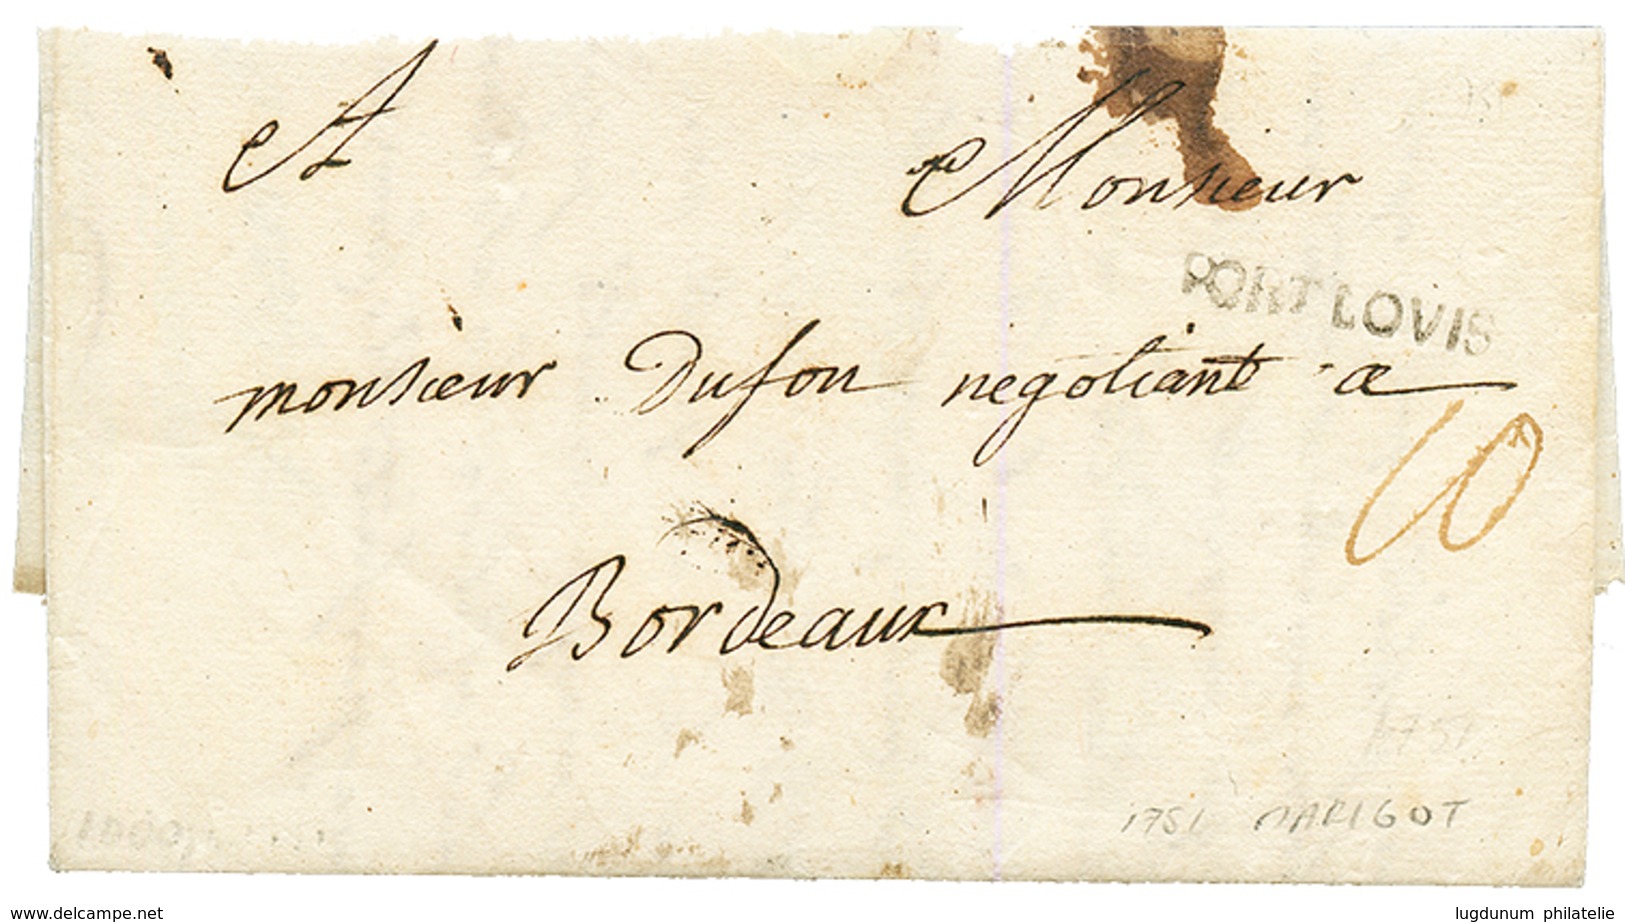 A Monsieur
PORT LOVIS
monsieur Dufou negotiant a
10
Bordeaux
1751
1751 MARIGOT
www.delcampe.net
lugdunum philatelie